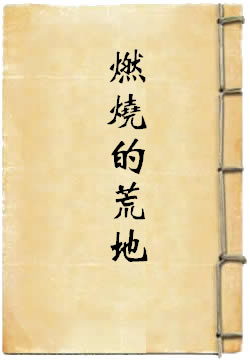 燃燒的荒地